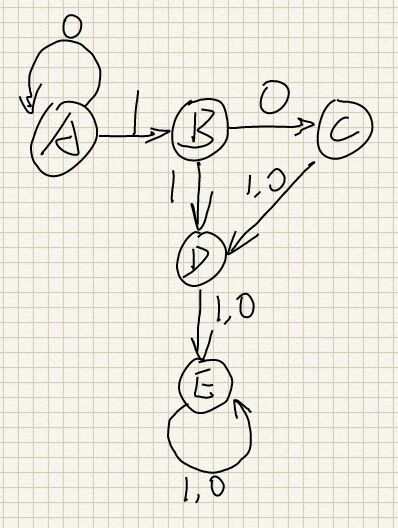 0
A 1 B 0 C
1 1,0
D
1,0
E
1,0